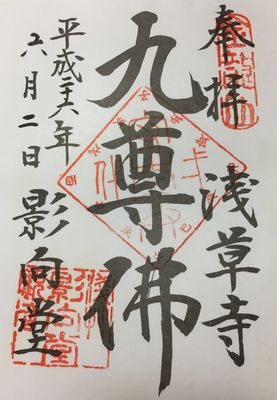 奉拝
浅草寺
九尊佛
影向堂
平成二十六年
六月二日